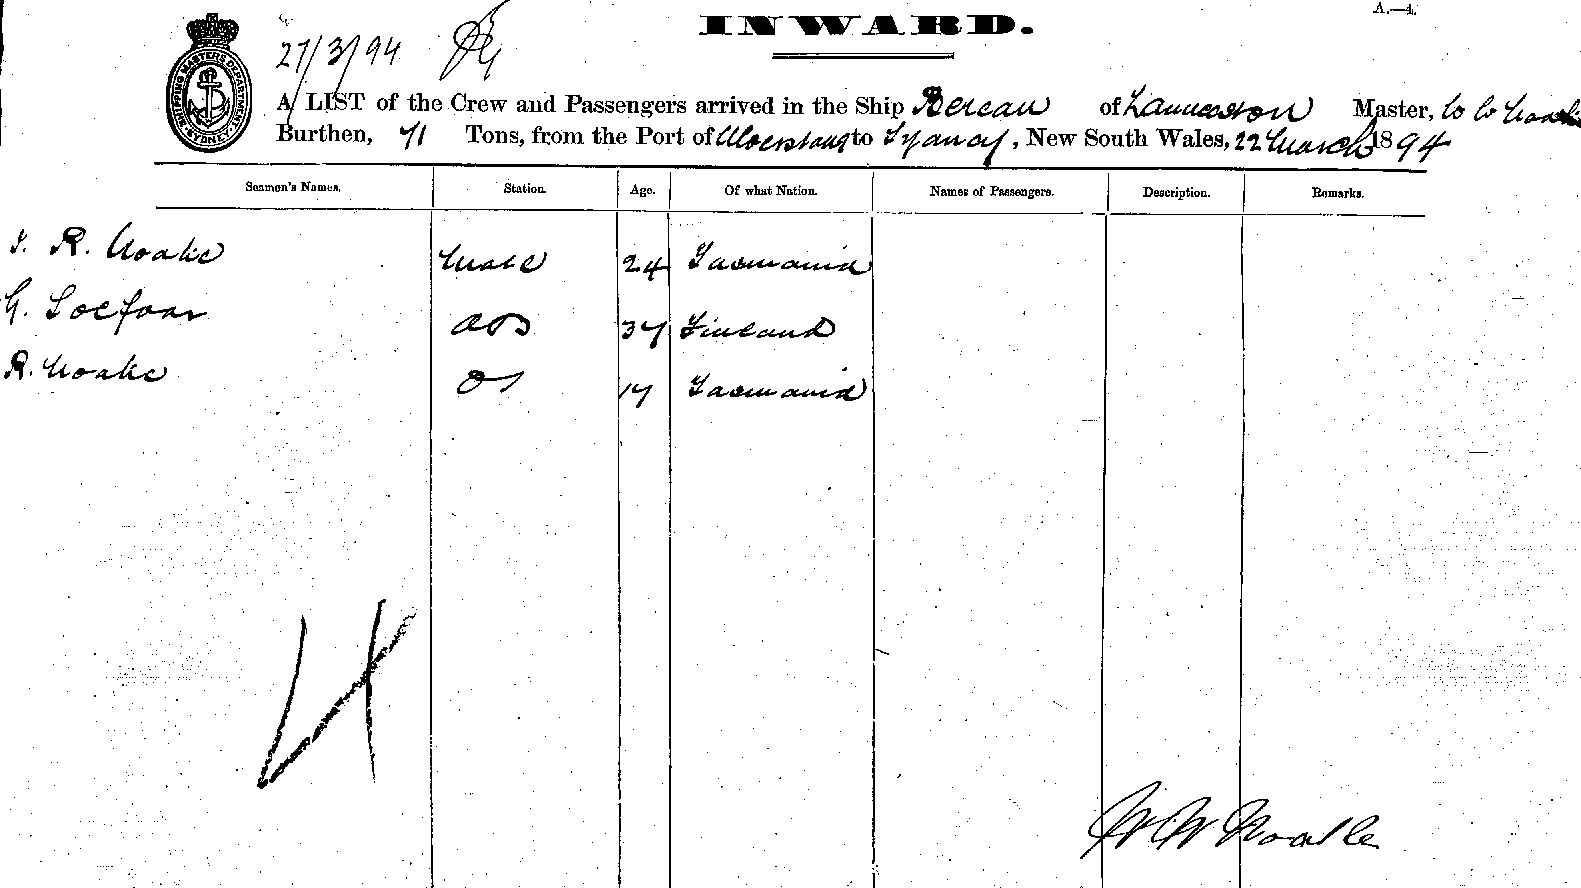 A.—4.
INWARD.
27/3/94
SHIPPING MASTER'S DEPARTMENT SYDNEY
A LIST of the Crew and Passengers arrived in the Ship Berean of Launceston Master, W W
Burthen, 71 Tons, from the Port of Ulverstone to Sydney, New South Wales, 22 March 1894
Seamen's Names. Station. Age. Of what Nation. Names of Passengers. Description. Remarks.
R. Noake Mate 24 Tasmania
G. AB 37 Finland
R. Noake OS 17 Tasmania
4
W W Noake